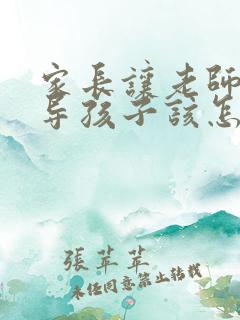 家長讓老師
導孩子該怎
張苹苹
未经同意禁止转载